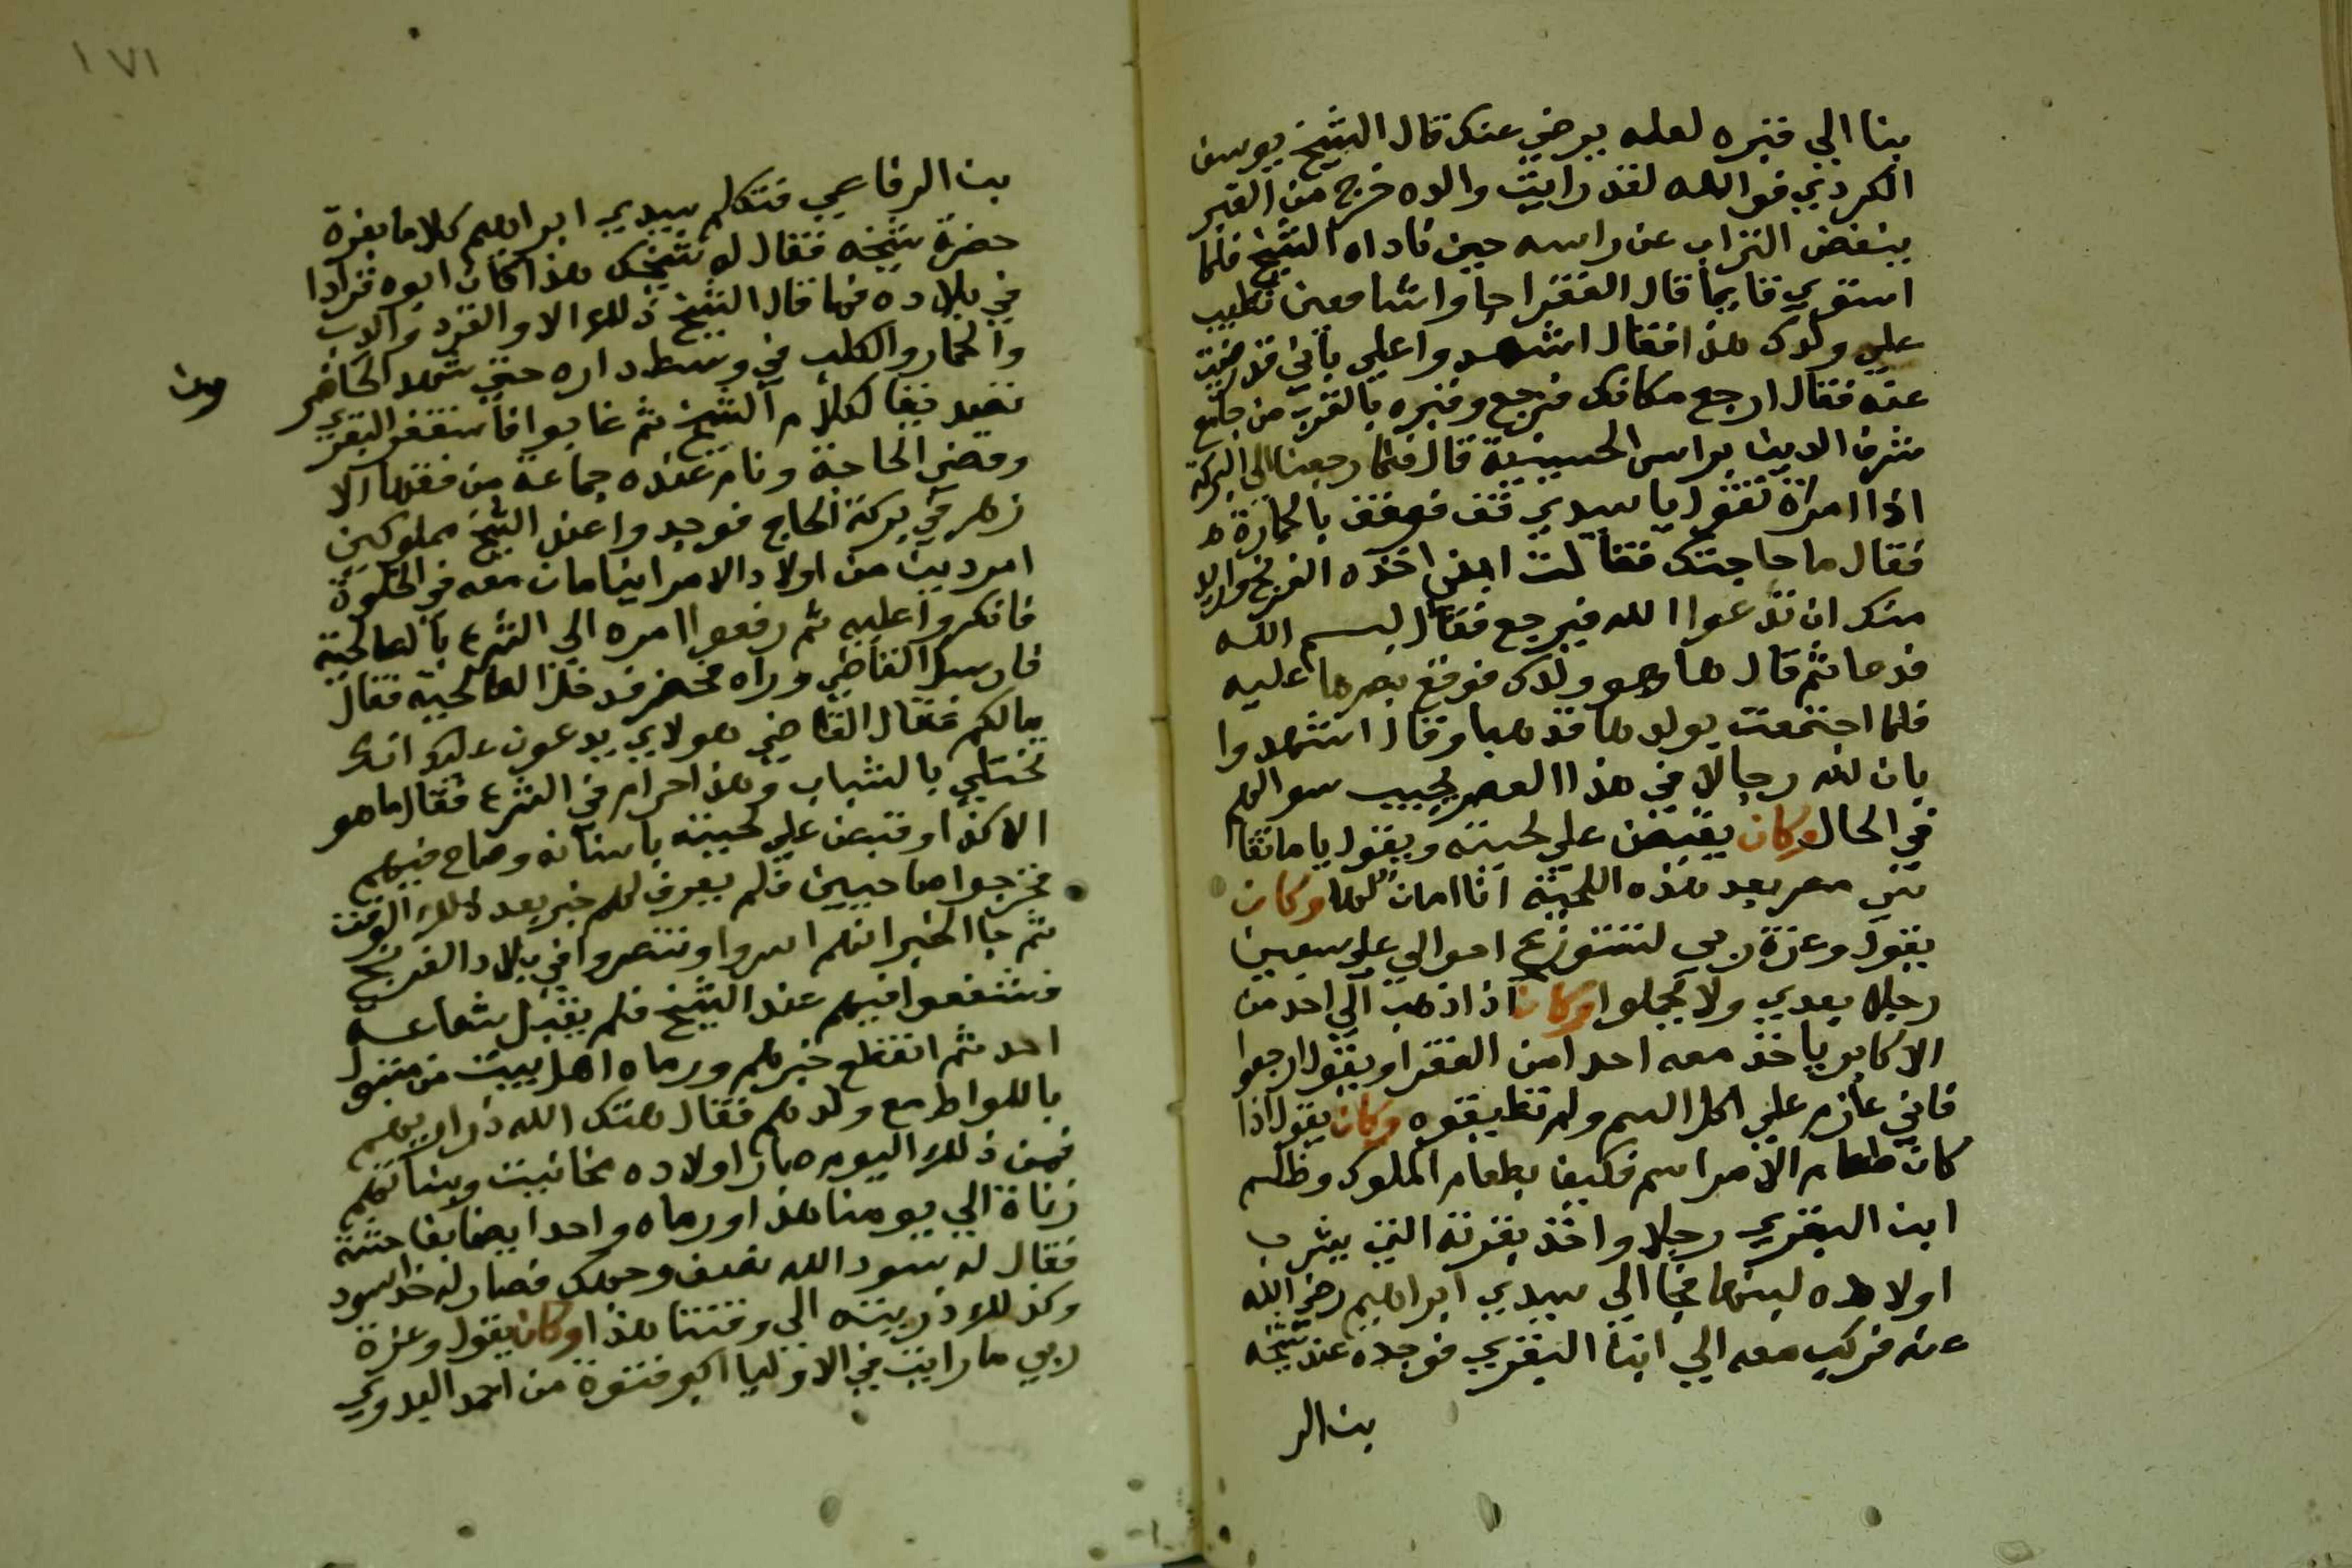 بنا الي قبره لعله يرضي عنك قال الشيخ يوسف
الكردي فوالله لقد رايت والده خرج من القبر
ينفض التراب عن راسه حين ناداه الشيخ فلما
استوي قايما قال الفقرا جاوا شافعين تطيب
علي ولدك هذا فقال اشهدوا علي باني قد رضيت
عنه فقال ارجع مكانك فرجع وقبره بالقرب من جامع
شرف الدين براس الحسينية قال فلما رجعنا الي البركة
اذا امراة تقول يا سيدي قف فوقف بالحمارة
فقال ما حاجتك فقالت ابني اخذه الفرنج واريد
منك ان تدعوا الله فيرجع فقال بسم الله
فدعا ثم قال ها وهو ولدك فوقع بصرها عليه
فلما اجتمعت بولدها قد هبا وقال اشهدوا
بان لله رجالا في هذا العصر يجيب سوالهم
في الحال وكان يقبض علي لحيته ويقول يا ما تقا
سي مصر بعد هذه اللحية انا امان لها وكان
يقول وعزة ربي لتتوزع احوالي علي سبعين
رجلا بعدي ولا يحملوا وكان اذا ذهب الي احد من
الاكابر ياخذ معه احدا من الفقرا ويقول ارجعوا
فاني عازم علي اكل السم ولم تطيقوه وكان يقول اذا
كان طعام الامرا سم فكيف بطعام الملوك وظلم
ابن البقري رجلا واخذ بقرته التي يشرب
اولاده لبنها فجا الي سيدي ابراهيم رضي الله
عنه فركب معه الي ابن البقري فوجده عند شيخه
بن الر
١٧١
بن الرفاعي فتكلم سيدي ابراهيم كلاما بعزة
حضرة شيخه فقال له شيخك هذا كان ابوه قرادا
في بلاده فما قال الشيخ ذلك الا والقرد والدب
والحمار والكلب في وسط داره حتي شهد الحاضر
ون
تصديقا لكلام الشيخ ثم غابوا فاستغفر البقري
وقضي الحاجة ونام عنده جماعة من فقها الا
زهر في بركة الحاج فوجدوا عند الشيخ مملوكين
امردين من اولاد الامرا ينامان معه في الخلوة
فانكروا عليه ثم رفعوا امره الي الشرع بالصالحية
فارسل القاضي وراه فحضر فدخل الصالحية فقال
مالكم فقال القاضي هولاي يدعون عليك انك
تختلي بالشباب وهذا حرام في الشرع فقال ما هو
الا كذا وقبض علي لحيته باسنانه وصاح فيهم
فخرجوا صاحبين فلم يعرف لهم خبر بعد ذلك الوقت
ثم جا الخبر انهم اسروا وتنصروا في بلاد الفرنج
فتشفعوا فيهم عند الشيخ فلم يقبل شفاعة
احد ثم انقطع خبرهم ورماه اهل بيت من متبول
باللواط مع ولدهم فقال هتك الله ذراريهم
فمن ذلك اليوم صار اولاده مخانيث وبناتهم
زناة الي يومنا هذا ورماه واحد ايضا بفاحشة
فقال له سود الله نصف وجهك فصار له خد اسود
وكذلك ذريته الي وقتنا هذا وكان يقول وعزة
ربي ما رايت في الاوليا اكبر فتوة من احمد البدوي